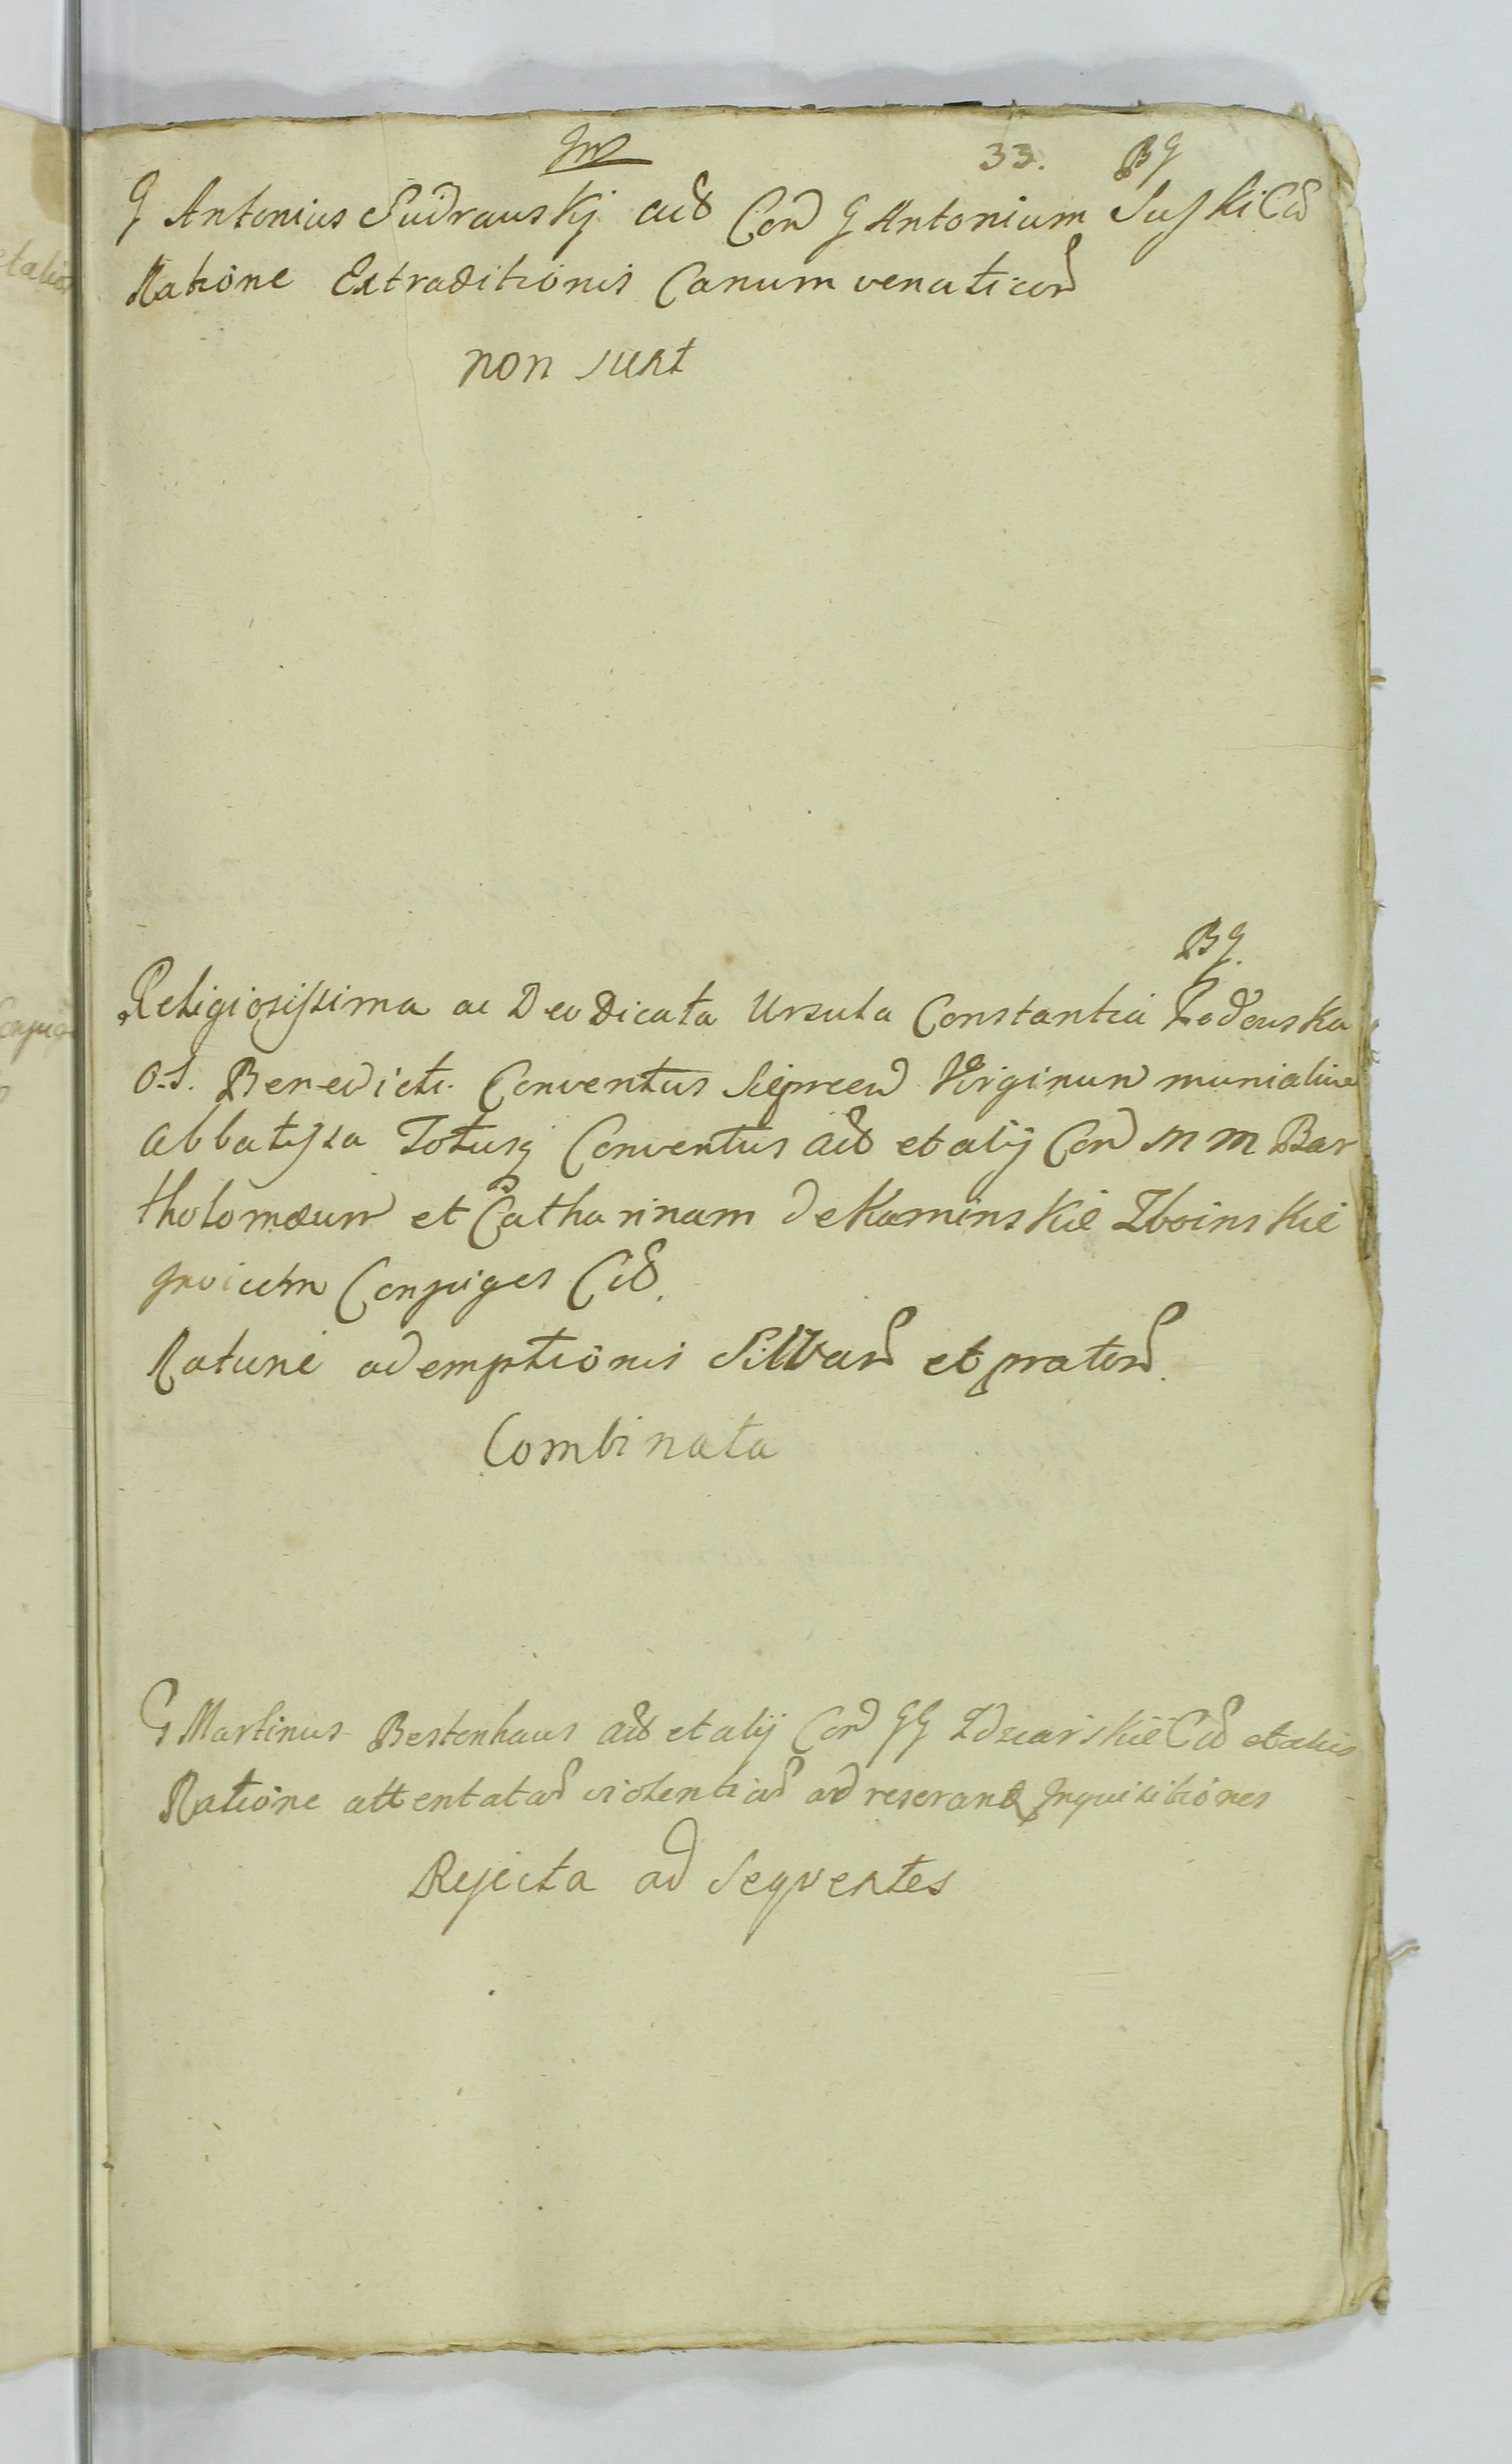 33. BG
G Antonius Sudrauskj acto Con G Antonium Suski Cto
Ratione Extraditionis Canum venaticor
non sunt
BG.
Religiosissima ac Deo Dicata Ursula Constantia
O.S. Benedicti Conventus Virginum monialium
abbatissa Totusq Conventus acto et alij Con M M Bar
tholomæum et Catharinam de Kaminskie Zboinskie
invicem Conjuges Cto.
Ratione ademptionis Silvar et prator.
Combinata
G Martinus Bestenhaus acto et alij Con GG Cto et alios
Ratione attentatar violentiar ad reserand Inquisitiones
Rejecta ad Sequentes